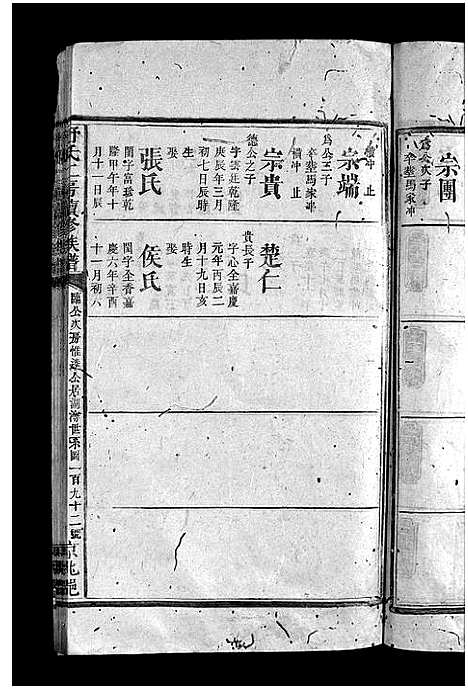 宗團
為公次子
卒塟馬家冲
宗端
為公三子
卒塟馬家冲
續冲 止
宗貴
德公之子
字雲廷乾隆
庚辰年三月
初七日辰時
生
娶
張氏
閨字富珍乾
隆甲午年十
月十一日辰
楚仁
貴長子
字心全嘉慶
元年丙辰二
月十九日亥
時生
娶
侯氏
閨字全香嘉
慶六年辛酉
十二月初八
氏 房 修族譜
臨公次房惟逵公居湖濱世系圖一百九十二號
京兆